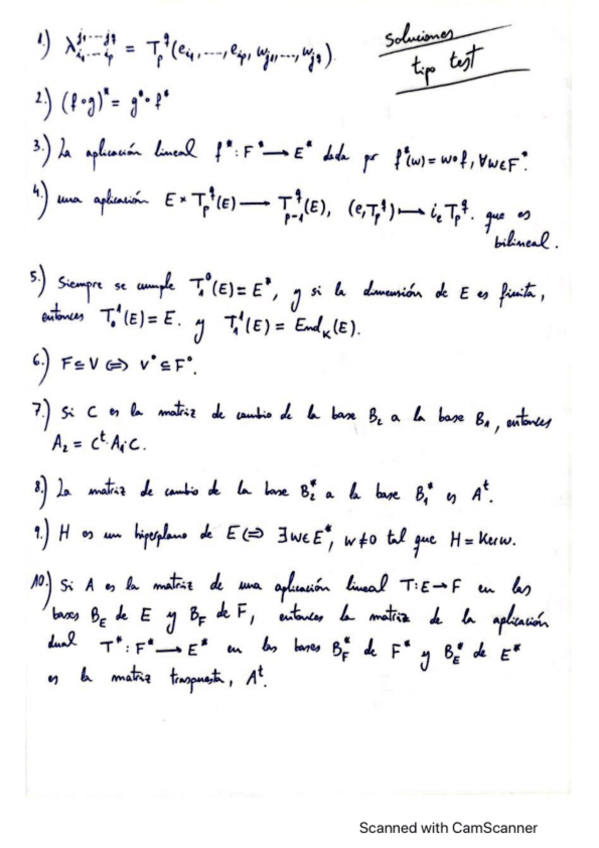 Soluciones
tipo test
1.) λ_{i_1....i_p}^{j_1....j_q} = T_p^q(e_{i_1},....,e_{i_p}, w_{j_1},...., w_{j_q}).
2.) (f∘g)* = g*∘f*
3.) La aplicación lineal f*: F* → E* dada por f*(w) = w∘f, ∀w∈F*.
4.) una aplicación E × T_p^q(E) → T_{p-1}^q(E), (e,T_p^q) ↦ i_e T_p^q. que es
bilineal.
5.) Siempre se cumple T_1^0(E) = E*, y si la dimensión de E es finita,
entonces T_0^1(E) = E. y T_1^1(E) = End_K(E).
6.) F ⊆ V ⟺ V° ⊆ F°.
7.) Si C es la matriz de cambio de la base B_2 a la base B_1, entonces
A_2 = C^t·A_1·C.
8.) La matriz de cambio de la base B_2* a la base B_1* es A^t.
9.) H es un hiperplano de E ⟺ ∃w∈E*, w≠0 tal que H = Ker w.
10.) Si A es la matriz de una aplicación lineal T: E → F en las
bases B_E de E y B_F de F, entonces la matriz de la aplicación
dual T*: F* → E* en las bases B_F* de F* y B_E* de E*
es la matriz traspuesta, A^t.
Scanned with CamScanner